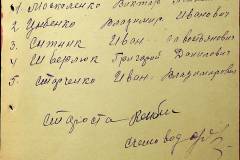 1. Москаленко Виктор
2. Цыбенко Владимир Иванович
3. Ситник Иван
4. Шверлюк Григорий Данилович
5. Старченко Иван Владимирович
Староста
счетовод